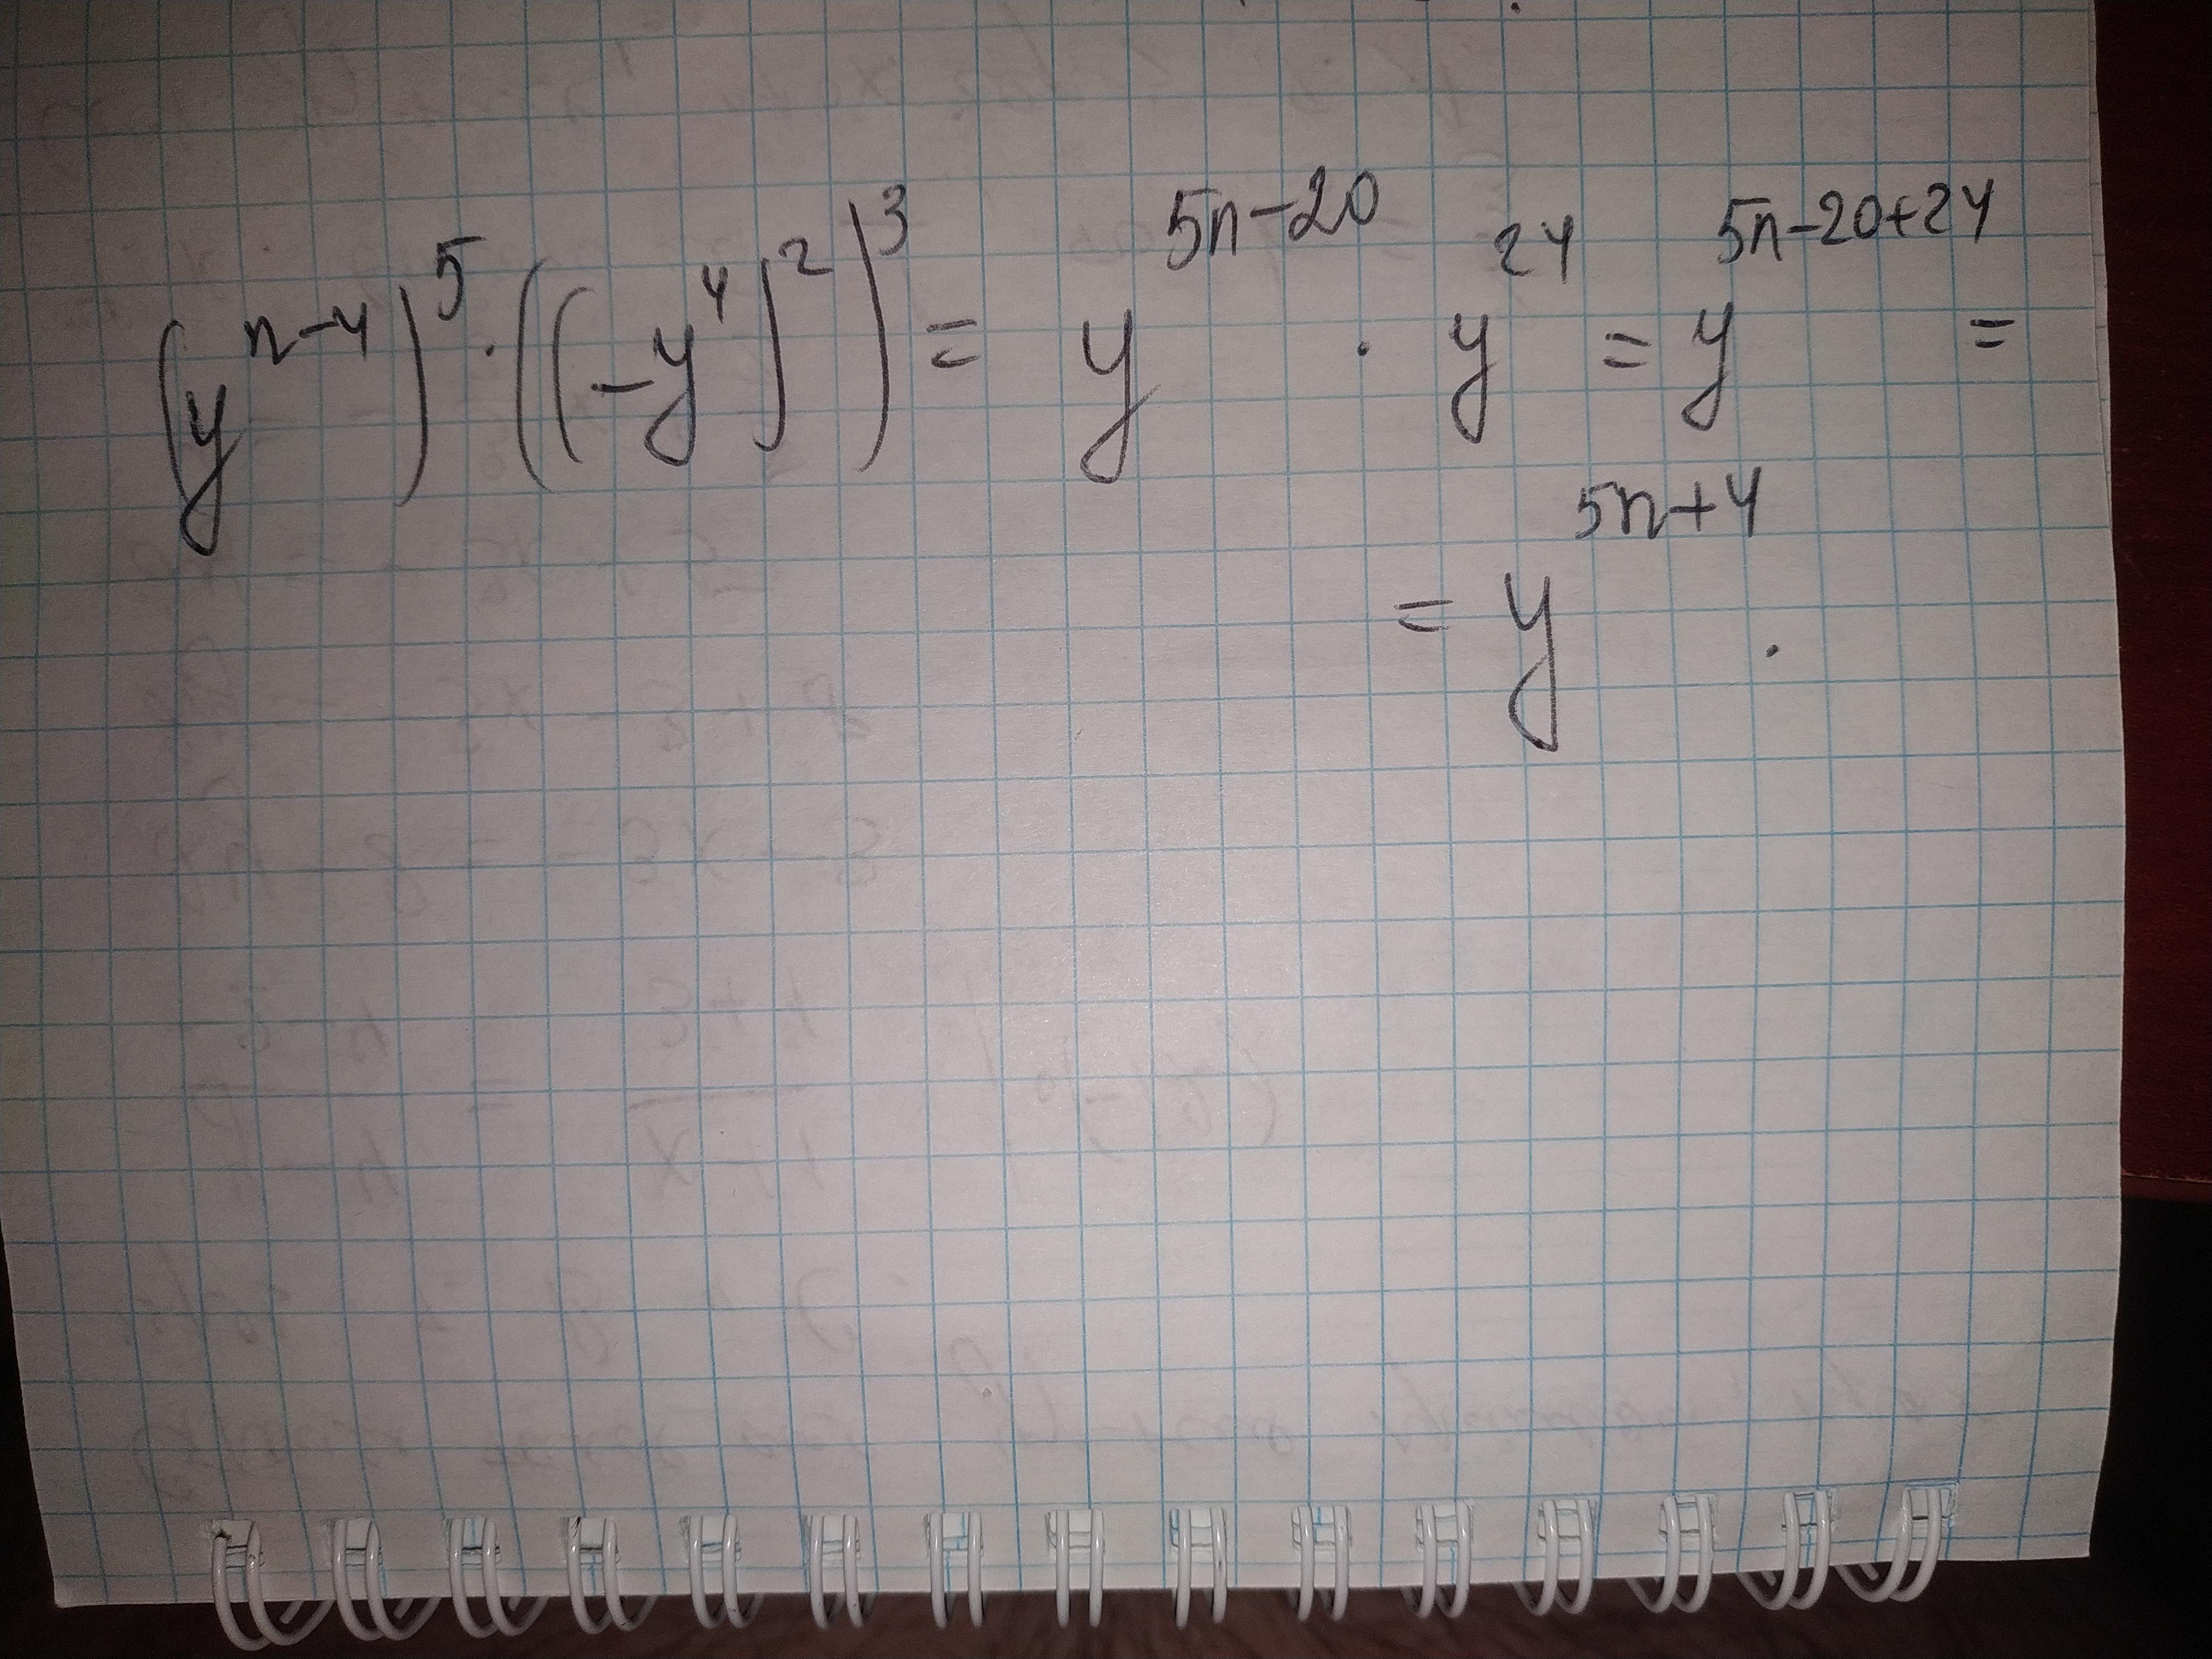 (y^{n-4})^5 · ((-y^4)^2)^3 = y^{5n-20} · y^{24} = y^{5n-20+24} =
= y^{5n+4} .